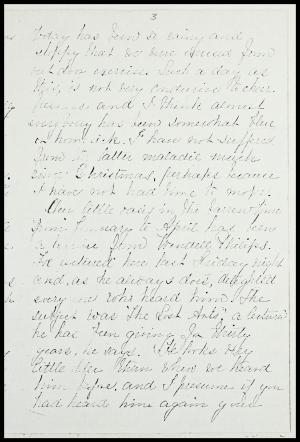 3
today has been so rainy and
sloppy that we were excused from
out door exercise. Such a day as
this, is not very conducive to cheer-
fulness and I think almost
everybody has been somewhat blue
or home-sick. I have not suffered
from the latter maladie much
since Christmas, perhaps because
I have not had time to mope.
One little oasis in the time
from January to April has been
a lecture from Wendell Phillips.
He lectured here last Friday night
and, as he always does, delighted
every one who heard him. The
subject was "The Lost Arts," a lecture
he has been giving for thirty
years, he says. He looks very
little older than when we heard
him before, and I presume if you
had heard him again you'd